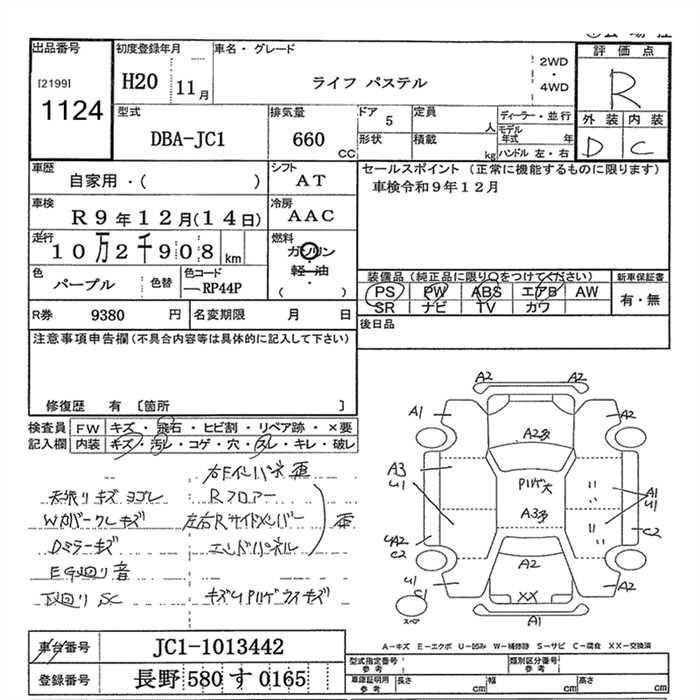 出品番号
[2199]
1124
初度登録年月
H20 11月
車名・グレード
ライフ パステル
2WD
・
4WD
評価点
R
外装 内装
D C
型式
DBA-JC1
排気量
660
CC
ドア
5
形状
定員
人
積載
kg
ディーラー・並行
モデル年式 年
ハンドル 左・右
車歴
自家用・( )
シフト
AT
セールスポイント(正常に機能するものに限ります)
車検令和9年12月
車検
R9年12月(14日)
冷房
AAC
走行
10万2千908 km
燃料
ガソリン
・
軽油
・
( )
色
パープル
色替
色コード
―RP44P
装備品(純正品に限り○をつけてください)
PS PW ABS エアB AW
SR ナビ TV カワ
新車保証書
有・無
R券 9380 円
名変期限 月 日
後日品
注意事項申告欄(不具合内容等は具体的に記入して下さい)
修復歴 有 〔箇所 〕
検査員記入欄
FW キズ・飛石・ヒビ割・リペア跡・×要
内装 キズ・汚レ・コゲ・穴・スレ・キレ・破レ
天張リキズヨゴレ
Wカバークレキズ
Dミラーキズ
EG廻り音
下廻りSC
右Fインパネ歪
Rフロアー
左右Rサイドメンバー
エンドパネル
歪
A2 A2
A1 A2
A2多
A3
U1
PUゲ大
A1
U1
A3多
UA2
C2
C2
A2
U1
C1
A2
XX
A1
スペア
A-キズ E-エクボ U-凹み W-補修跡 S-サビ C-腐食 XX-交換済
車台番号
JC1-1013442
登録番号
長野 580 す 0165
型式指定番号
参考
類別区分番号
参考
車庫証明用
参考
長さ cm
幅 cm
高さ cm